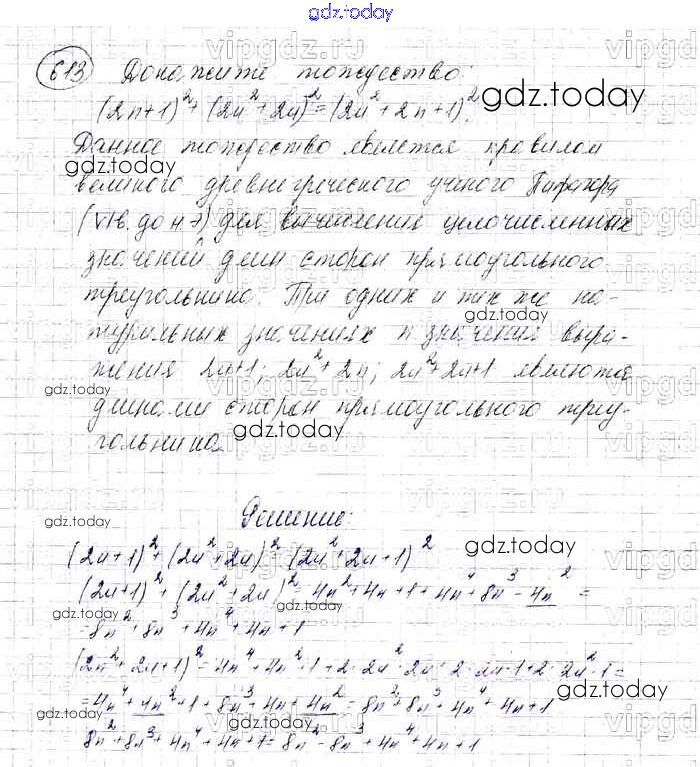 gdz.today
613 Докажите тождество:
(2n+1)² + (2n² + 2n)² = (2n² + 2n + 1)².
Данное тождество является правилом
великого древнегреческого ученого Пифагора
(VI в. до н.э) для вычисления целочисленных
значений длин сторон прямоугольного
треугольника. При одних и тех же на-
туральных значениях n значения выра-
жения 2n+1; 2n² + 2n; 2n² + 2n + 1 являются
длинами сторон прямоугольного треу-
гольника
Решение:
(2n+1)² + (2n² + 2n)² (2n² + 2n + 1)²
(2n+1)² + (2n² + 2n)² = 4n² + 4n + 1 + 4n⁴ + 8n³ - 4n² =
= 8n² + 8n³ + 4n⁴ + 4n + 1
(2n² + 2n + 1)² = 4n⁴ + 4n² + 1 + 2 · 2n² · 2n · 2 · 2n · 1 + 2 · 2n² · 1 =
= 4n⁴ + 4n² + 1 + 8n³ + 4n + 4n² = 8n² + 8n³ + 4n⁴ + 4n + 1
8n² + 8n³ + 4n⁴ + 4n + 1 = 8n² - 8n³ + 4n⁴ + 4n + 1